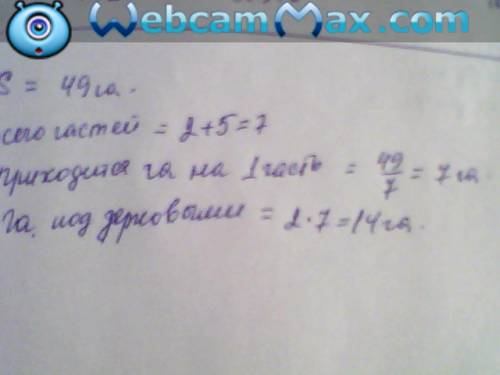 WebcamMax.com
S = 49га.
сего частей = 2+5=7
приходится га на 1 часть = 49/7 = 7 га
Га. под зерновыми = 2·7=14га.